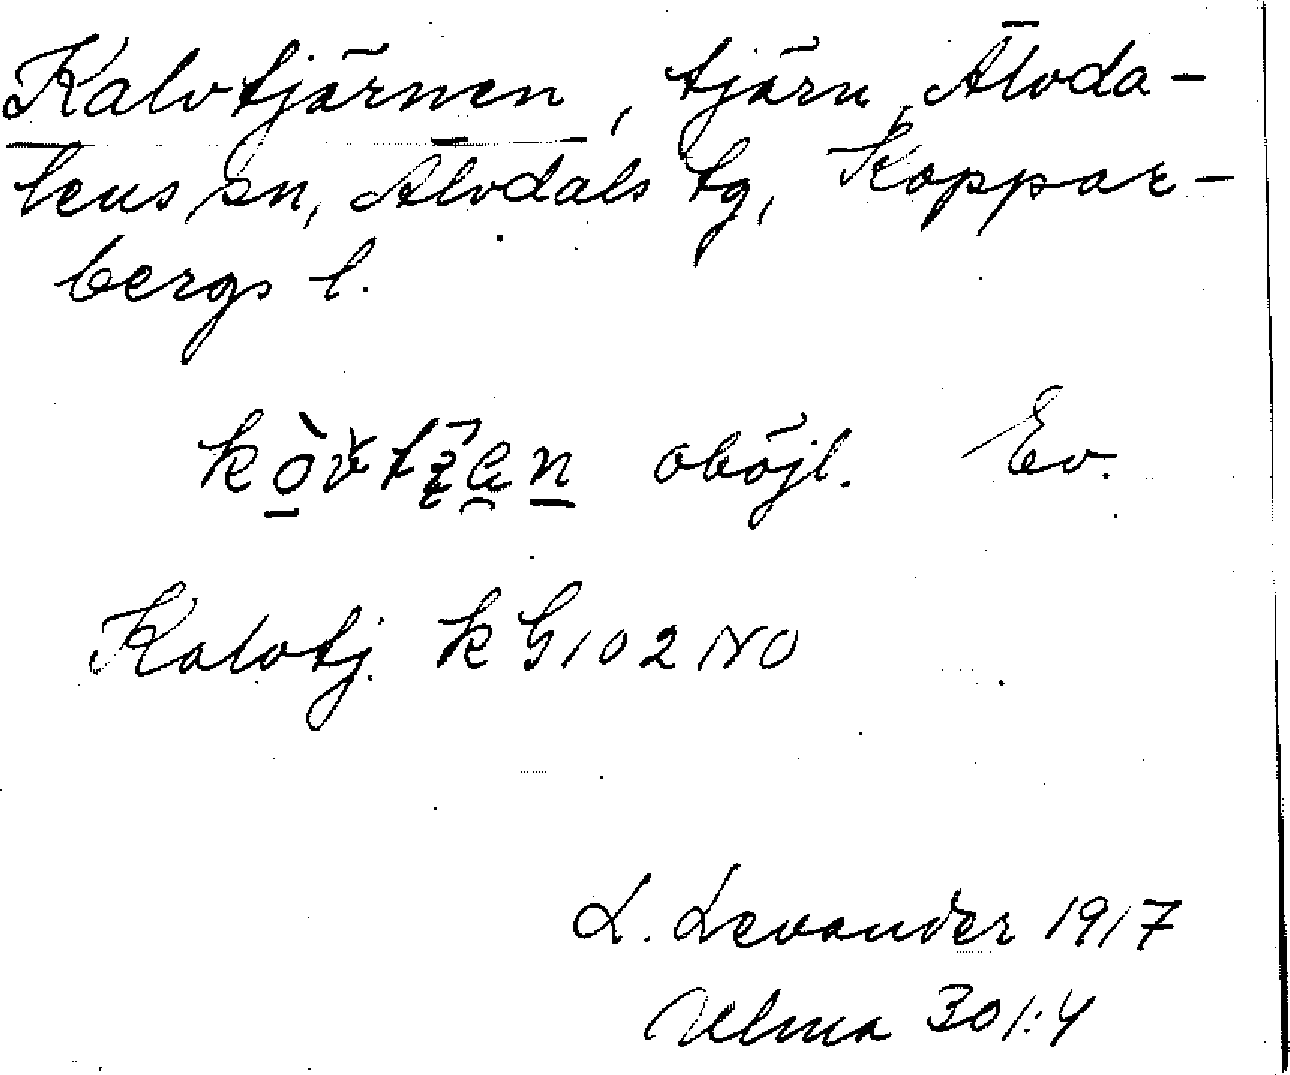 Kalvtjärnen, tjärn, Älvda-
lens sn, Älvdals tg, Koppar-
bergs l.
oböjl. Ev.
Kalvtj. k G 102 NO
L. Levander 1917
Ulma 301:4